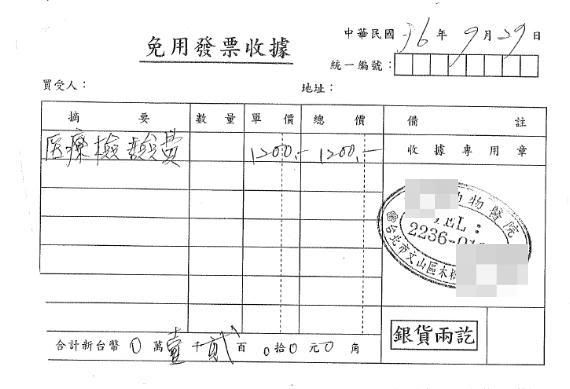 免用發票收據
中華民國 96 年 9 月 29 日
統一編號：
買受人： 地址：
摘要 數量 單價 總價 備註
医療檢驗費 1200.- 1200.-
收據專用章
動物醫院
TEL：
2236-01
台北市文山區木
合計新台幣 0 萬 壹 千 貳 百 0 拾 0 元 0 角
銀貨兩訖